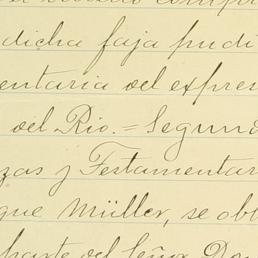 dicha faja pudi
entaria del expres
del Rio.= Segund
zas y Testamentar
que Müller, se obl
parte del Señor Don